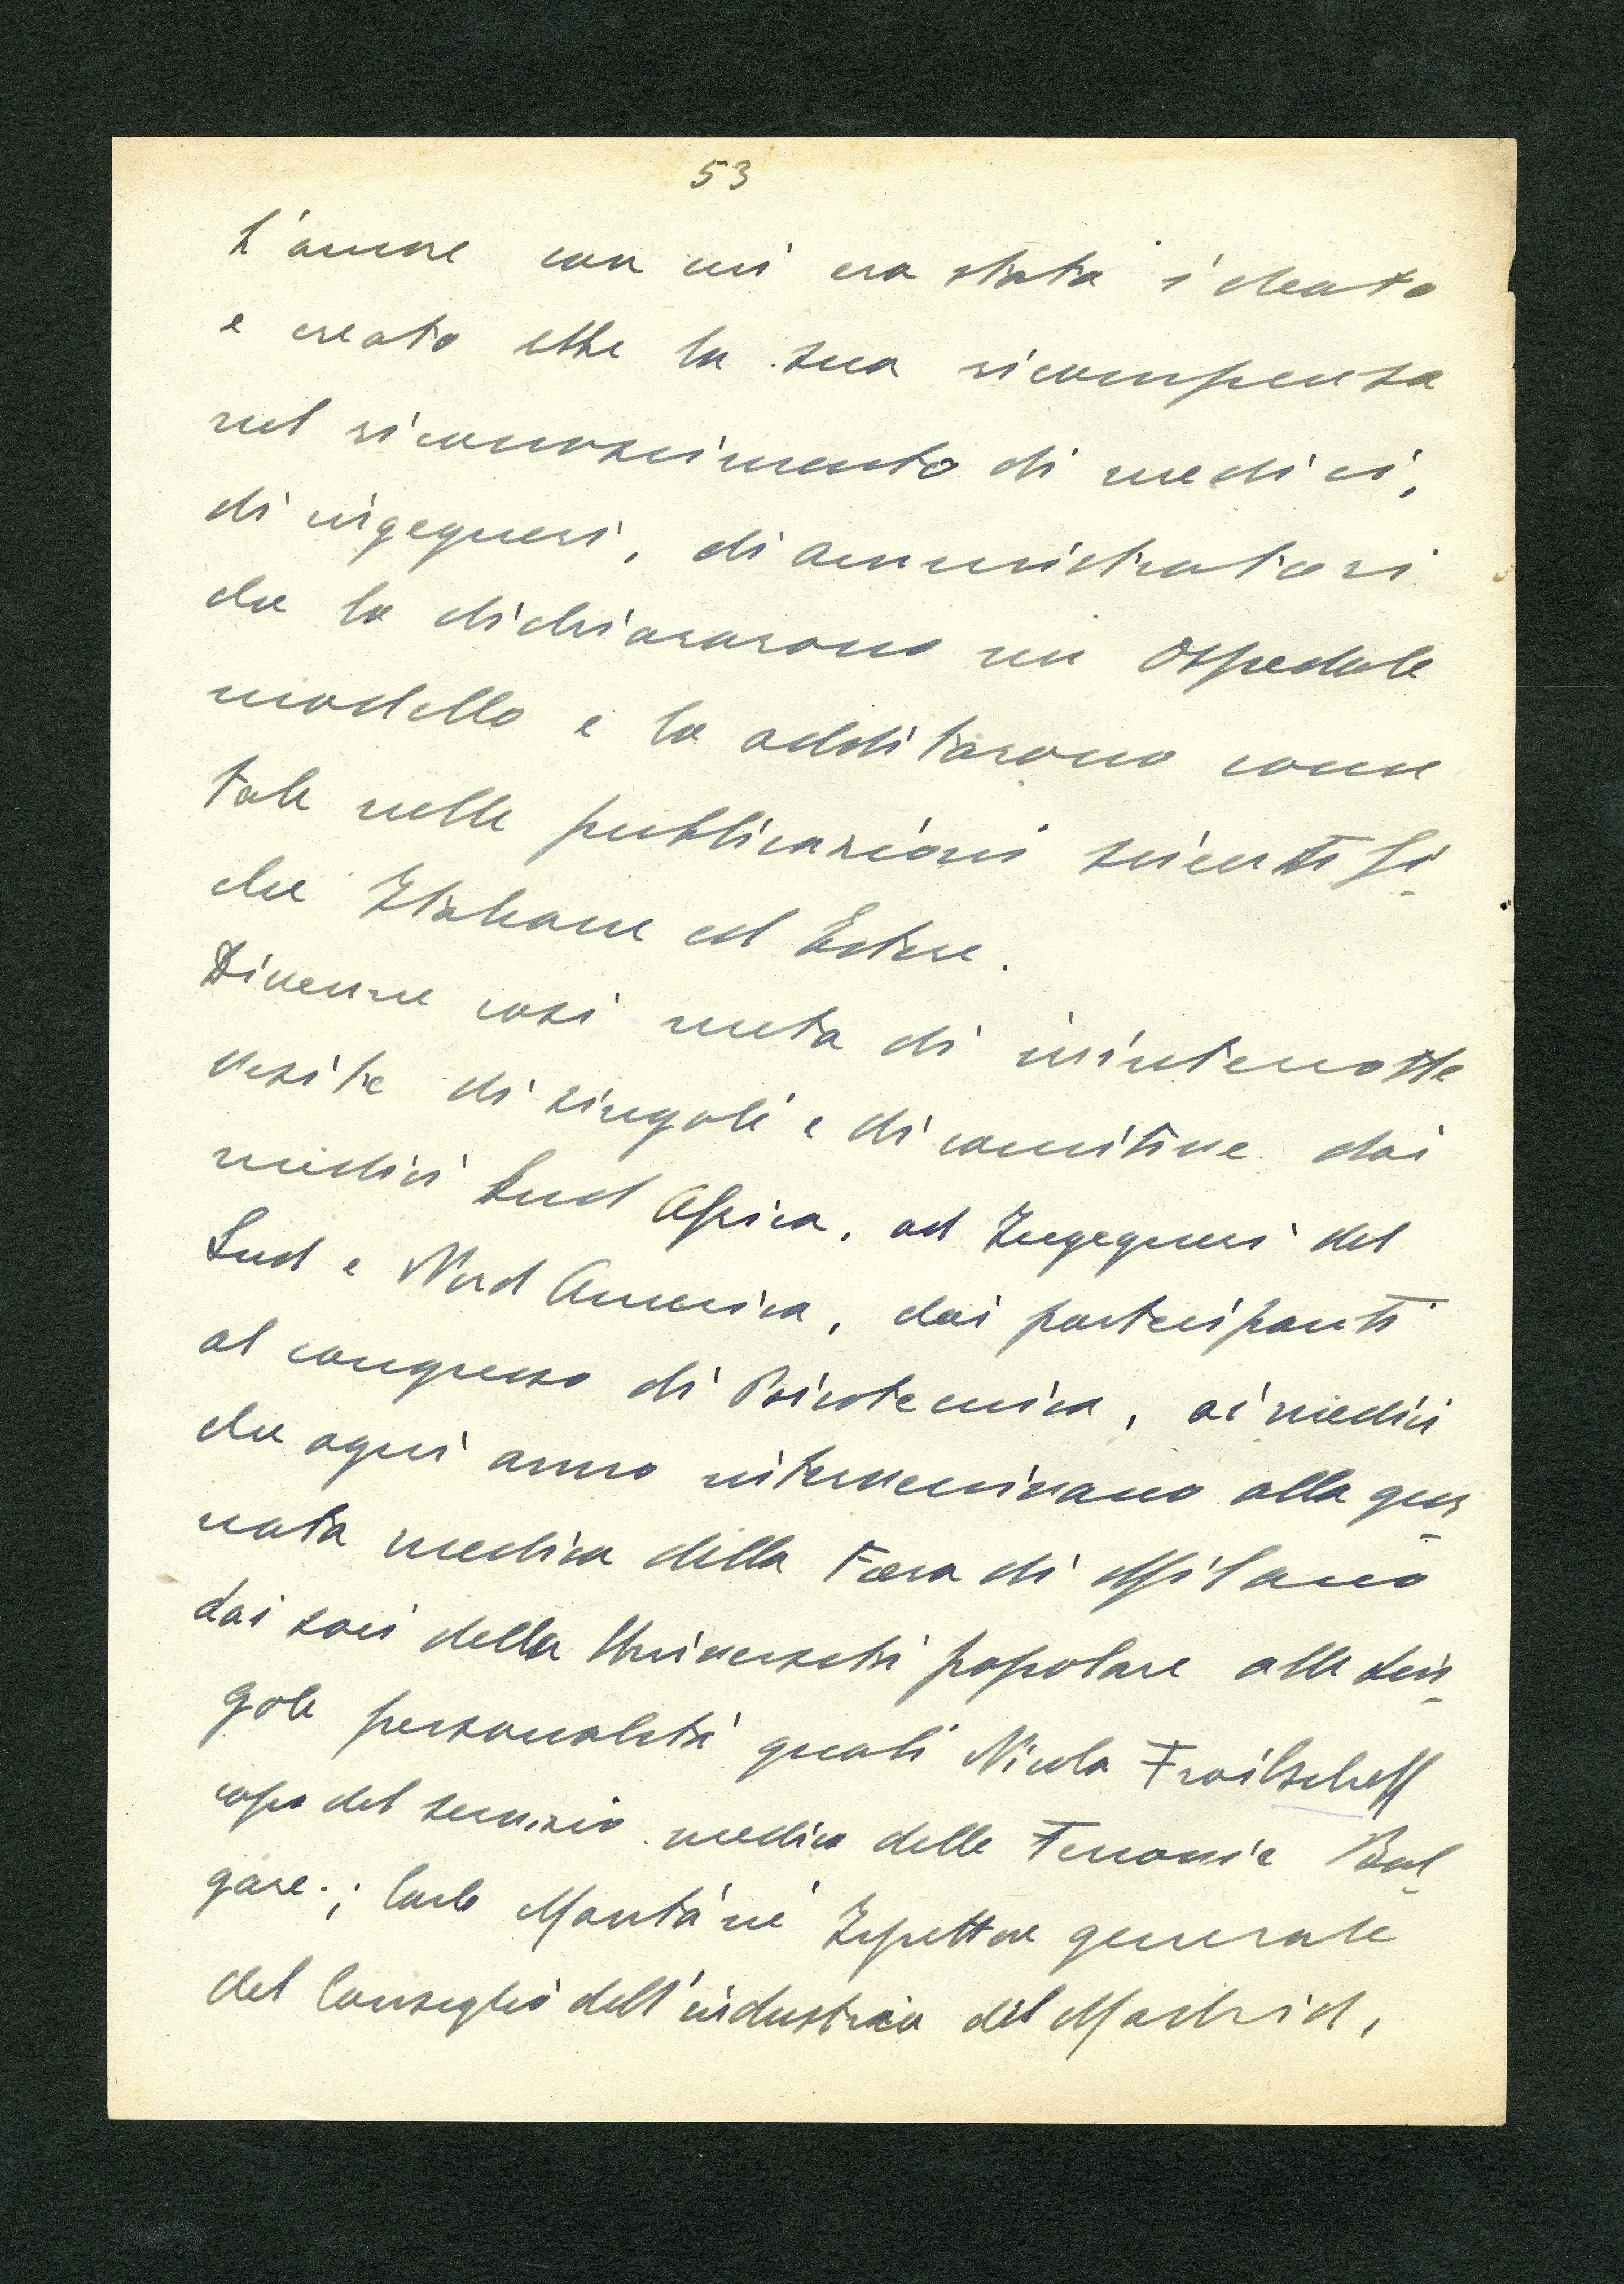 53
L'amore con cui era stata ideato
e creato ebbe la sua ricompensa
nel riconoscimento di medici,
di ingegneri, di amministratori
che lo dichiararono un Ospedale
modello e lo additarono come
tale nelle pubblicazioni scientifi-
che Italiane ed Estere.
Divenne così meta di ininterrotte
visite di singoli e di comitive dai
medici Sud Africa, ad Ingegneri del
Sud e Nord America, dai partecipanti
al congresso di Psicotecnica, ai medici
che ogni anno intervenivano alla gior-
nata medica della Fiera di Milano
dai soci della Università popolare alle sin-
gole personalità quali Nicola
capo del servizio medico delle Ferrovie Bul-
gare.; Carlo Ispettore generale
del Consiglio dell'industria del Madrid,